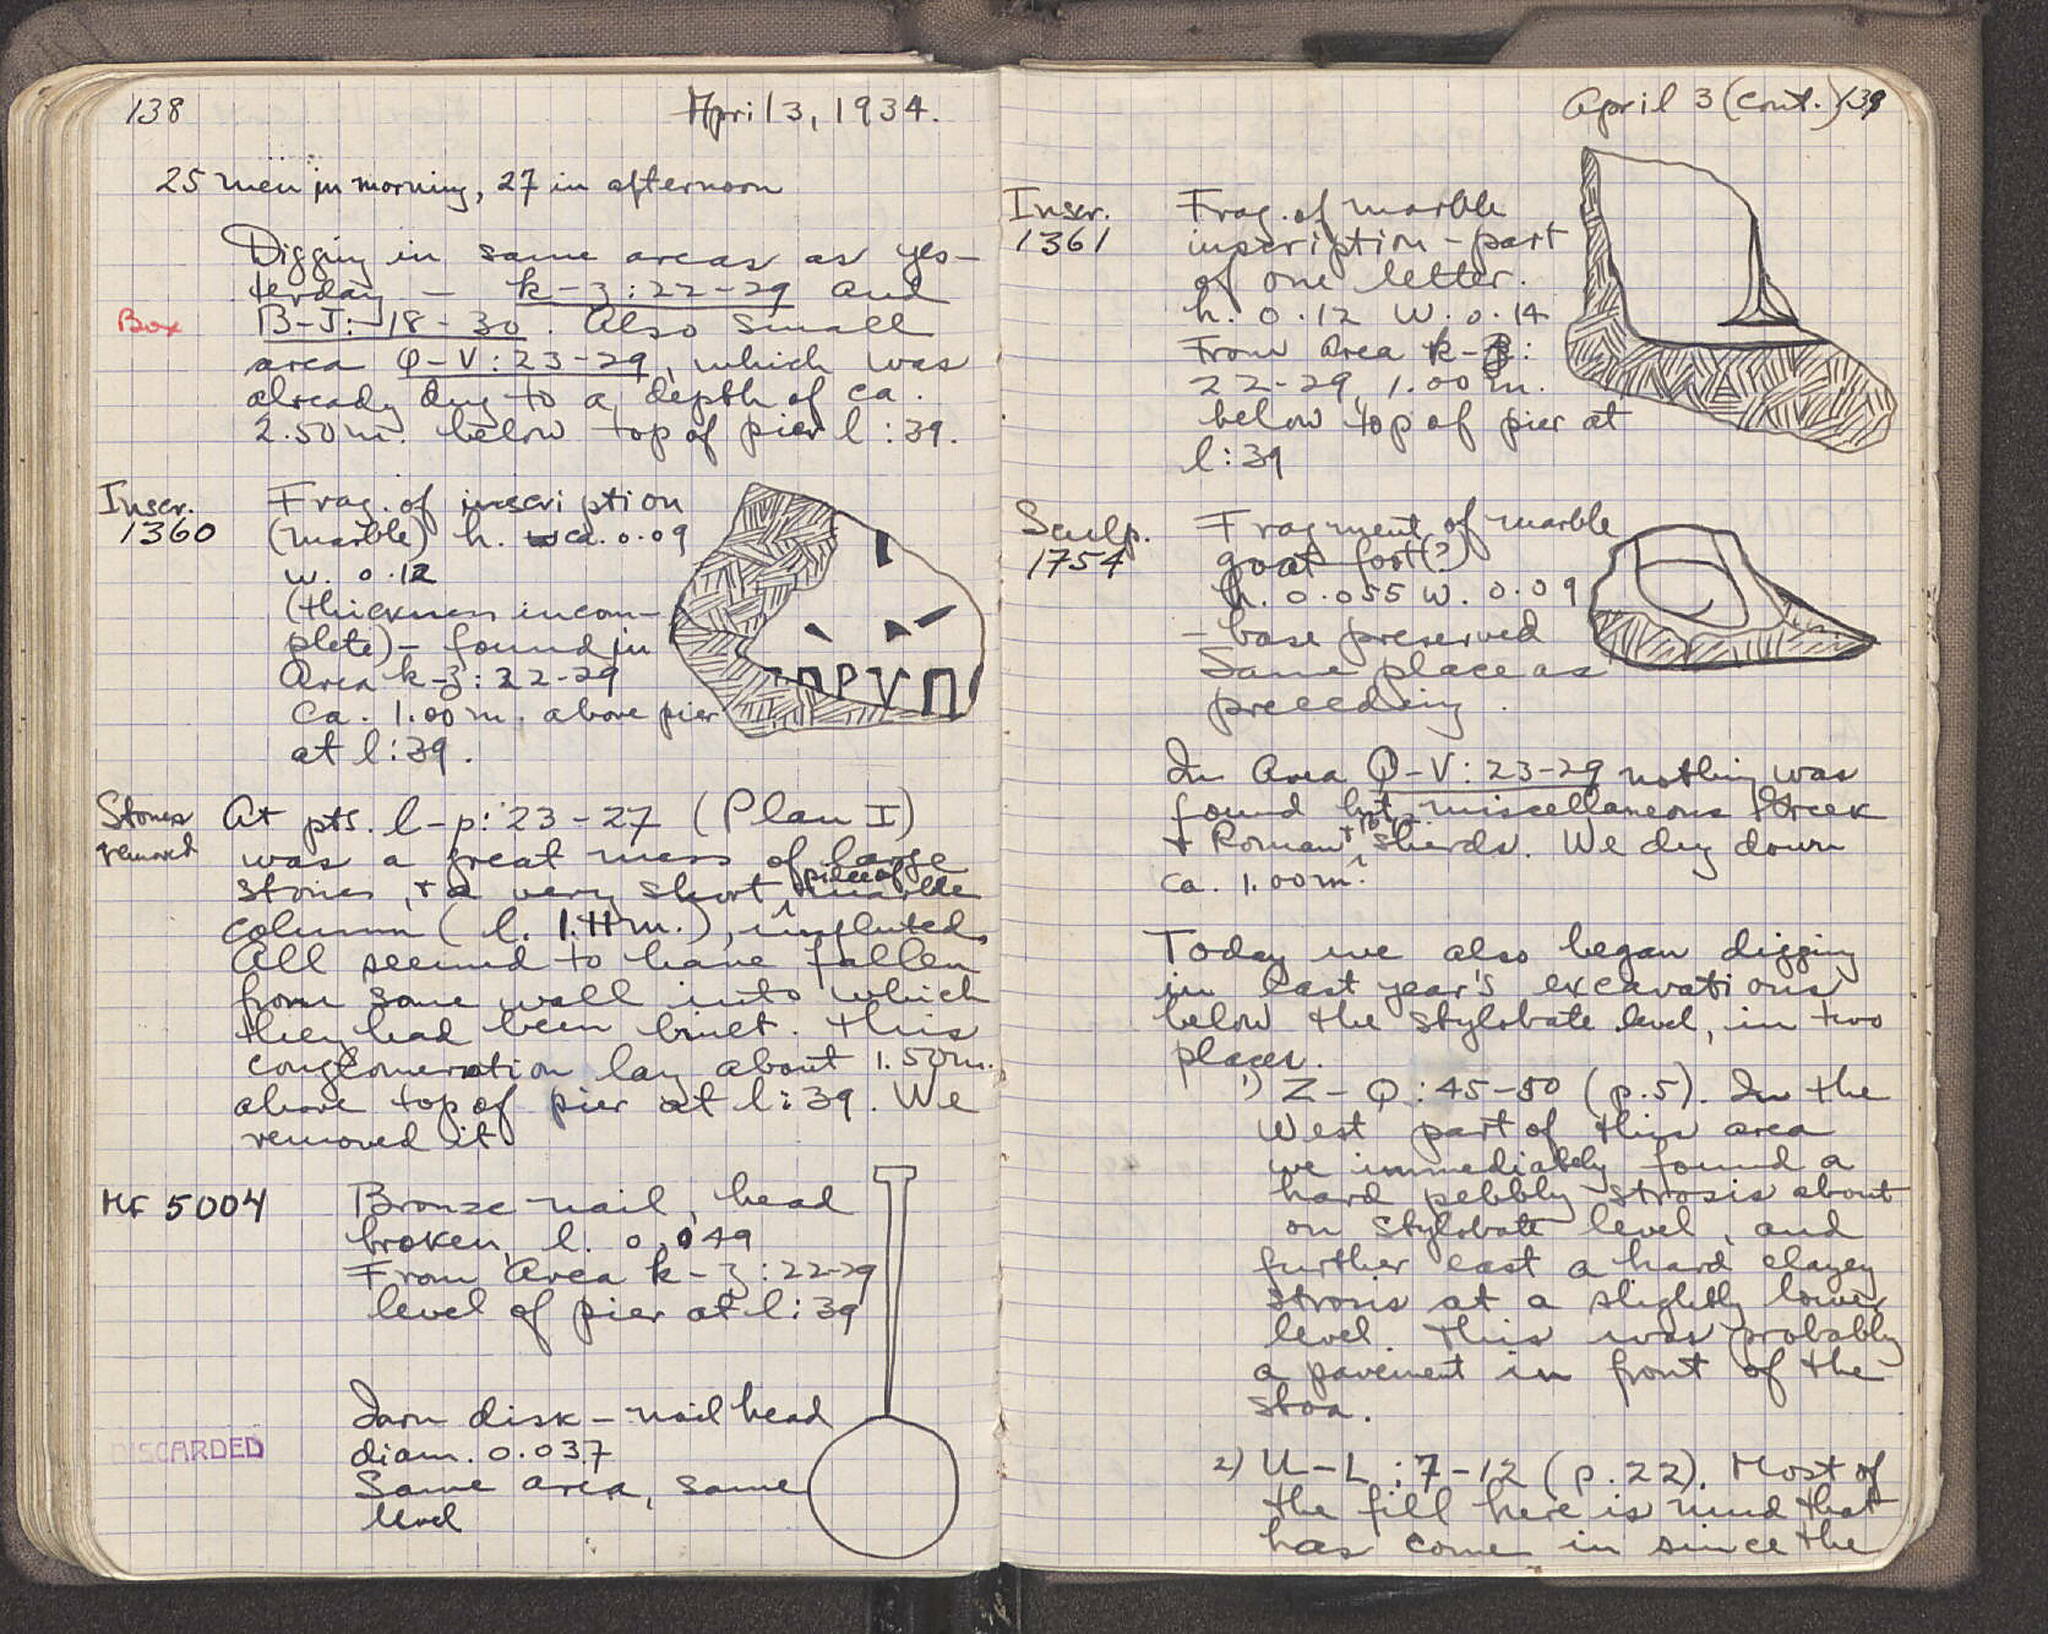 138
April 3, 1934.
25 men in morning, 27 in afternoon
Digging in same areas as yes-
terday – k-z:22-29 and
Box
B-J:18-30. Also small
area Q-V:23-29, which was
already dug to a depth of ca.
2.50m. below top of pier l:39.
Inscr.
1360
Frag. of inscription
(marble) h. ca. 0.09
w. 0.12
(thickness incom-
plete) – found in
Area k-z:22-29
Ca. 1.00m. above pier
at l:39.
Stones
removed
At pts. l-p:23-27 (Plan I)
was a great mess of large
stones, + a very short piece of marble
column (l. 1.11m.), unfluted.
All seemed to have fallen
from some wall into which
they had been built. This
conglomeration lay about 1.50m.
above top of pier at l:39. We
removed it
MF 5004
Bronze nail, head
broken, l. 0.049
From Area k-z:22-29
level of pier at l:39
DISCARDED
Iron disk – nail head
diam. 0.037
Same area, same
level
April 3 (cont.) 139
Inscr.
1361
Frag. of marble
inscription – part
of one letter.
h. 0.12 w. 0.14
From Area k-z:
22-29, 1.00m.
below top of pier at
l:39
Sculp.
1754
Fragment of marble
goat foot(?)
h. 0.055 w. 0.09
– base preserved
Same place as
preceding.
In Area Q-V:23-29 nothing was
found but miscellaneous Greek
+ Roman sherds. We dug down
ca. 1.00m.
Today we also began digging
in last year's excavations
below the stylobate level, in two
places.
1) Z-Q:45-50 (p.5). In the
West part of this area
we immediately found a
hard pebbly strosis about
on stylobate level, and
further east a hard clayey
strosis at a slightly lower
level. This was probably
a pavement in front of the
stoa.
2) U-L:7-12 (p.22). Most of
the fill here is mud that
has come in since the